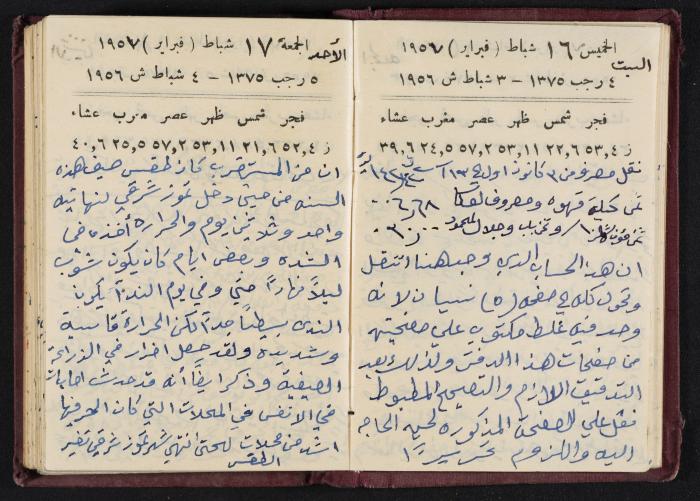 الخميس ١٦ شباط (فبراير) ١٩٥٧
السبت
٤ رجب ١٣٧٥ – ٣ شباط ش ١٩٥٦
فجر شمس ظهر عصر مغرب عشاء
٥٣,٤ ٢٢,٦ ٥٣,١١ ٥٧,٢ ٢٤,٥ ٣٩,٦
نقل مصرف من ٣ كانون اول
ثمن قهوه ومصروف
ان هذا الحساب الذي وجب هنا انتقل
وتحول كله في صفحه (٥) نسيان لانه
وجد فيه غلط مكتوب على صفحتيه
من صفحات هذا الدفتر ولذلك بعد
التدقيق اللازم والتصحيح المظبوط
نقل على الصفحة المذكوره لحين الحاجه
اليه واللزوم
الجمعة ١٧ شباط (فبراير) ١٩٥٧
الأحد
٥ رجب ١٣٧٥ – ٤ شباط ش ١٩٥٦
فجر شمس ظهر عصر مغرب عشاء
٥٢,٤ ٢١,٦ ٥٣,١١ ٥٧,٢ ٢٥,٥ ٤٠,٦
ان من المستغرب كان طقس صيف هذه
السنه من حين دخل تموز شرقي لنهايته
واحد وثلاثين يوم والحراره أخذه في
الشده وبعض ايام كان يكون شوب
ليلاً نهاراً حتى وفي يوم الندا يكون
الندى بسيطاً جداً لكن الحرارة قاسية
وشديده ولقد حصل اضرار في الزراعة
الصيفية وذكر ايضاً أنه قد حدث اصابات
في الانفس في المحلات التي كان الحر فيها
اشد من محلات حتى انتهى شهر تموز شرقي تغير
الطقس